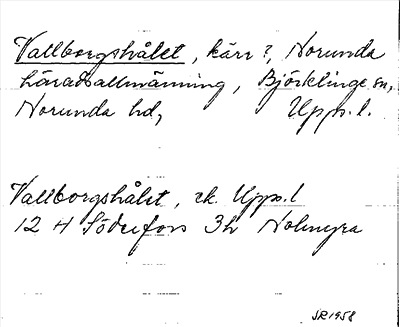 Vallborgshålet, kärr?, Norunda
häradsallmänning, Björklinge sn,
Norunda hd, Upps. l.
Vallborgshålet, ek. Upps. l
12 H Söderfors 3h Nolmyra
SR 1958